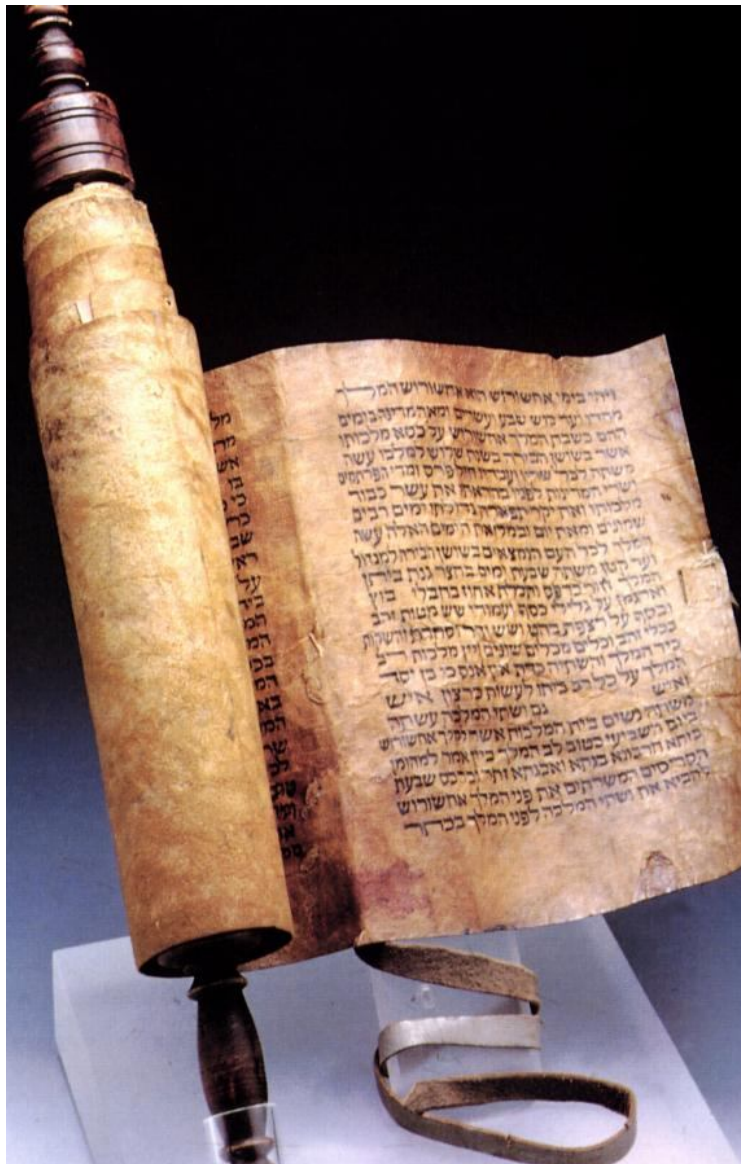 ויהי בימי אחשורוש הוא אחשורוש המלך
מהדו ועד כוש שבע ועשרים ומאה מדינה בימים
ההם כשבת המלך אחשורוש על כסא מלכותו
אשר בשושן הבירה בשנת שלוש למלכו עשה
משתה לכל שריו ועבדיו חיל פרס ומדי הפרתמים
ושרי המדינות לפניו בהראתו את עשר כבוד
מלכותו ואת יקר תפארת גדולתו ימים רבים
שמונים ומאת יום ובמלואת הימים האלה עשה
המלך לכל העם הנמצאים בשושן הבירה למגדול
ועד קטן משתה שבעת ימים בחצר גנת ביתן
המלך חור כרפס ותכלת אחוז בחבלי בוץ
וארגמן על גלילי כסף ועמודי שש מטות זהב
וכסף על רצפת בהט ושש ודר וסחרת והשקות
בכלי זהב וכלים מכלים שונים ויין מלכות רב
כיד המלך והשתיה כדת אין אנס כי כן יסד
המלך על כל רב ביתו לעשות כרצון איש
ואיש גם ושתי המלכה עשתה
משתה נשים בית המלכות אשר למלך אחשורוש
ביום השביעי כטוב לב המלך ביין אמר למהומן
בזתא חרבונא בגתא ואבגתא זתר וכרכס שבעת
הסריסים המשרתים את פני המלך אחשורוש
להביא את ושתי המלכה לפני המלך בכתר